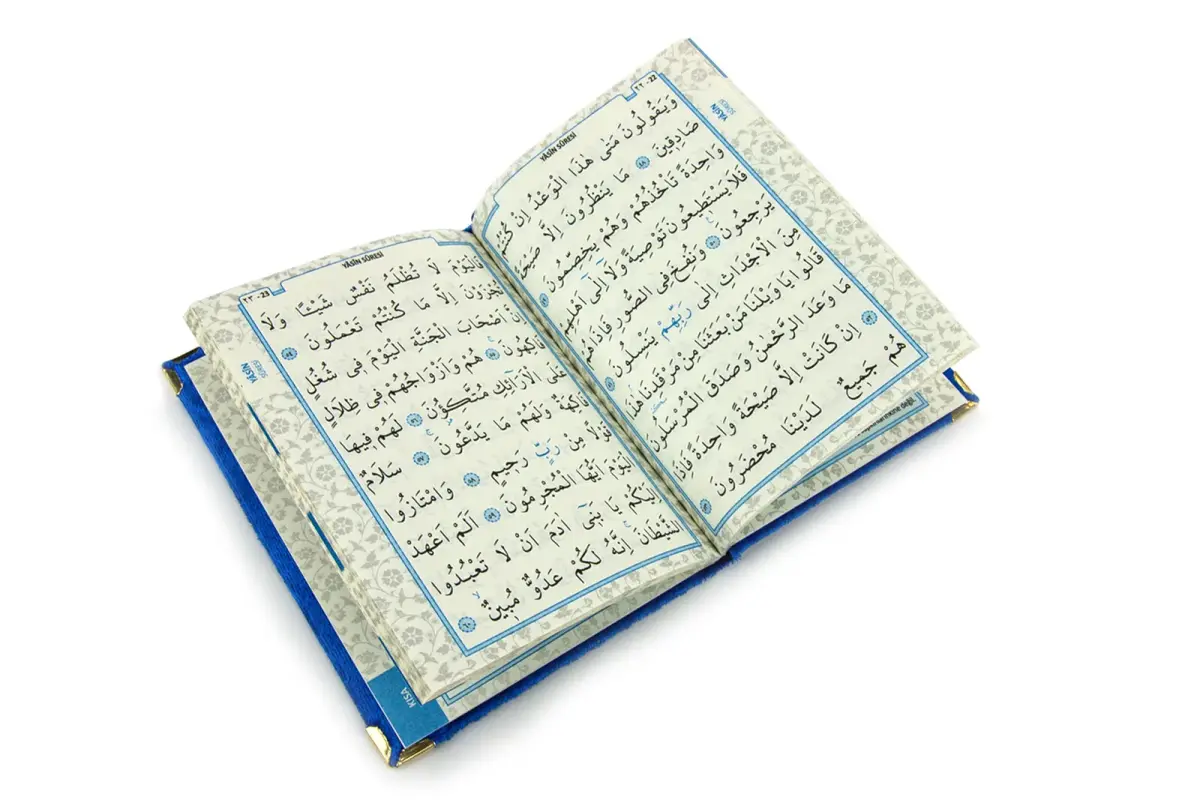 ٢٢ - 22
YÂSÎN SÛRESİ
YÂSÎN
SÛRESİ
وَيَقُولُونَ مَتٰى هٰذَا الْوَعْدُ اِنْ كُنْتُمْ
صَادِقٖينَ ٤٨ مَا يَنْظُرُونَ اِلَّا صَيْحَةً
وَاحِدَةً تَاْخُذُهُمْ وَهُمْ يَخِصِّمُونَ ٤٩
فَلَا يَسْتَطٖيعُونَ تَوْصِيَةً وَلَٓا اِلٰٓى اَهْلِهِمْ
يَرْجِعُونَ ٥٠ وَنُفِخَ فِى الصُّورِ فَاِذَا هُمْ
مِنَ الْاَجْدَاثِ اِلٰى رَبِّهِمْ يَنْسِلُونَ ٥١
قَالُوا يَا وَيْلَنَا مَنْ بَعَثَنَا مِنْ مَرْقَدِنَا هٰذَا
مَا وَعَدَ الرَّحْمٰنُ وَصَدَقَ الْمُرْسَلُونَ ٥٢
اِنْ كَانَتْ اِلَّا صَيْحَةً وَاحِدَةً فَاِذَا
هُمْ جَمٖيعٌ لَدَيْنَا مُحْضَرُونَ ٥٣
٢٣ - 23
YÂSÎN SÛRESİ
YÂSÎN
SÛRESİ
فَالْيَوْمَ لَا تُظْلَمُ نَفْسٌ شَيْئًا وَلَا
تُجْزَوْنَ اِلَّا مَا كُنْتُمْ تَعْمَلُونَ ٥٤
اِنَّ اَصْحَابَ الْجَنَّةِ الْيَوْمَ فٖى شُغُلٍ
فَاكِهُونَ ٥٥ هُمْ وَاَزْوَاجُهُمْ فٖى ظِلَالٍ
عَلَى الْاَرَٓائِكِ مُتَّكِؤُنَ ٥٦ لَهُمْ فٖيهَا
فَاكِهَةٌ وَلَهُمْ مَا يَدَّعُونَ ٥٧ سَلَامٌ
قَوْلًا مِنْ رَبٍّ رَحٖيمٍ ٥٨ وَامْتَازُوا
الْيَوْمَ اَيُّهَا الْمُجْرِمُونَ ٥٩ اَلَمْ اَعْهَدْ
اِلَيْكُمْ يَا بَنٖٓى اٰدَمَ اَنْ لَا تَعْبُدُوا
الشَّيْطَانَ اِنَّهُ لَكُمْ عَدُوٌّ مُبٖينٌ ٦٠
KISA